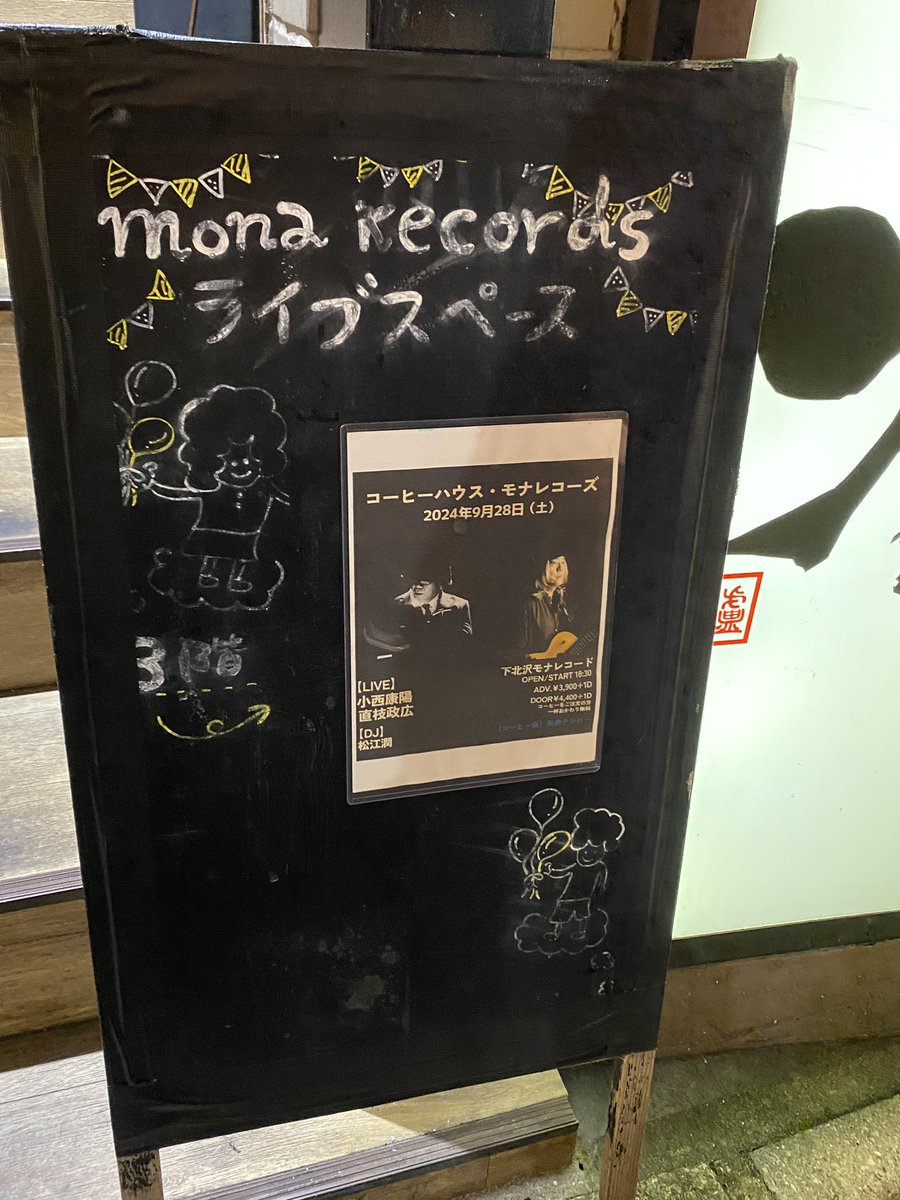 mona records
ライブスペース
3階
コーヒーハウス・モナレコーズ
2024年9月28日（土）
【LIVE】
小西康陽
直枝政広
【DJ】
松江潤
下北沢モナレコード
OPEN/START 18:30
ADV.¥3,900+1D
DOOR¥4,400+1D
コーヒーをご注文の方
一杯おかわり無料